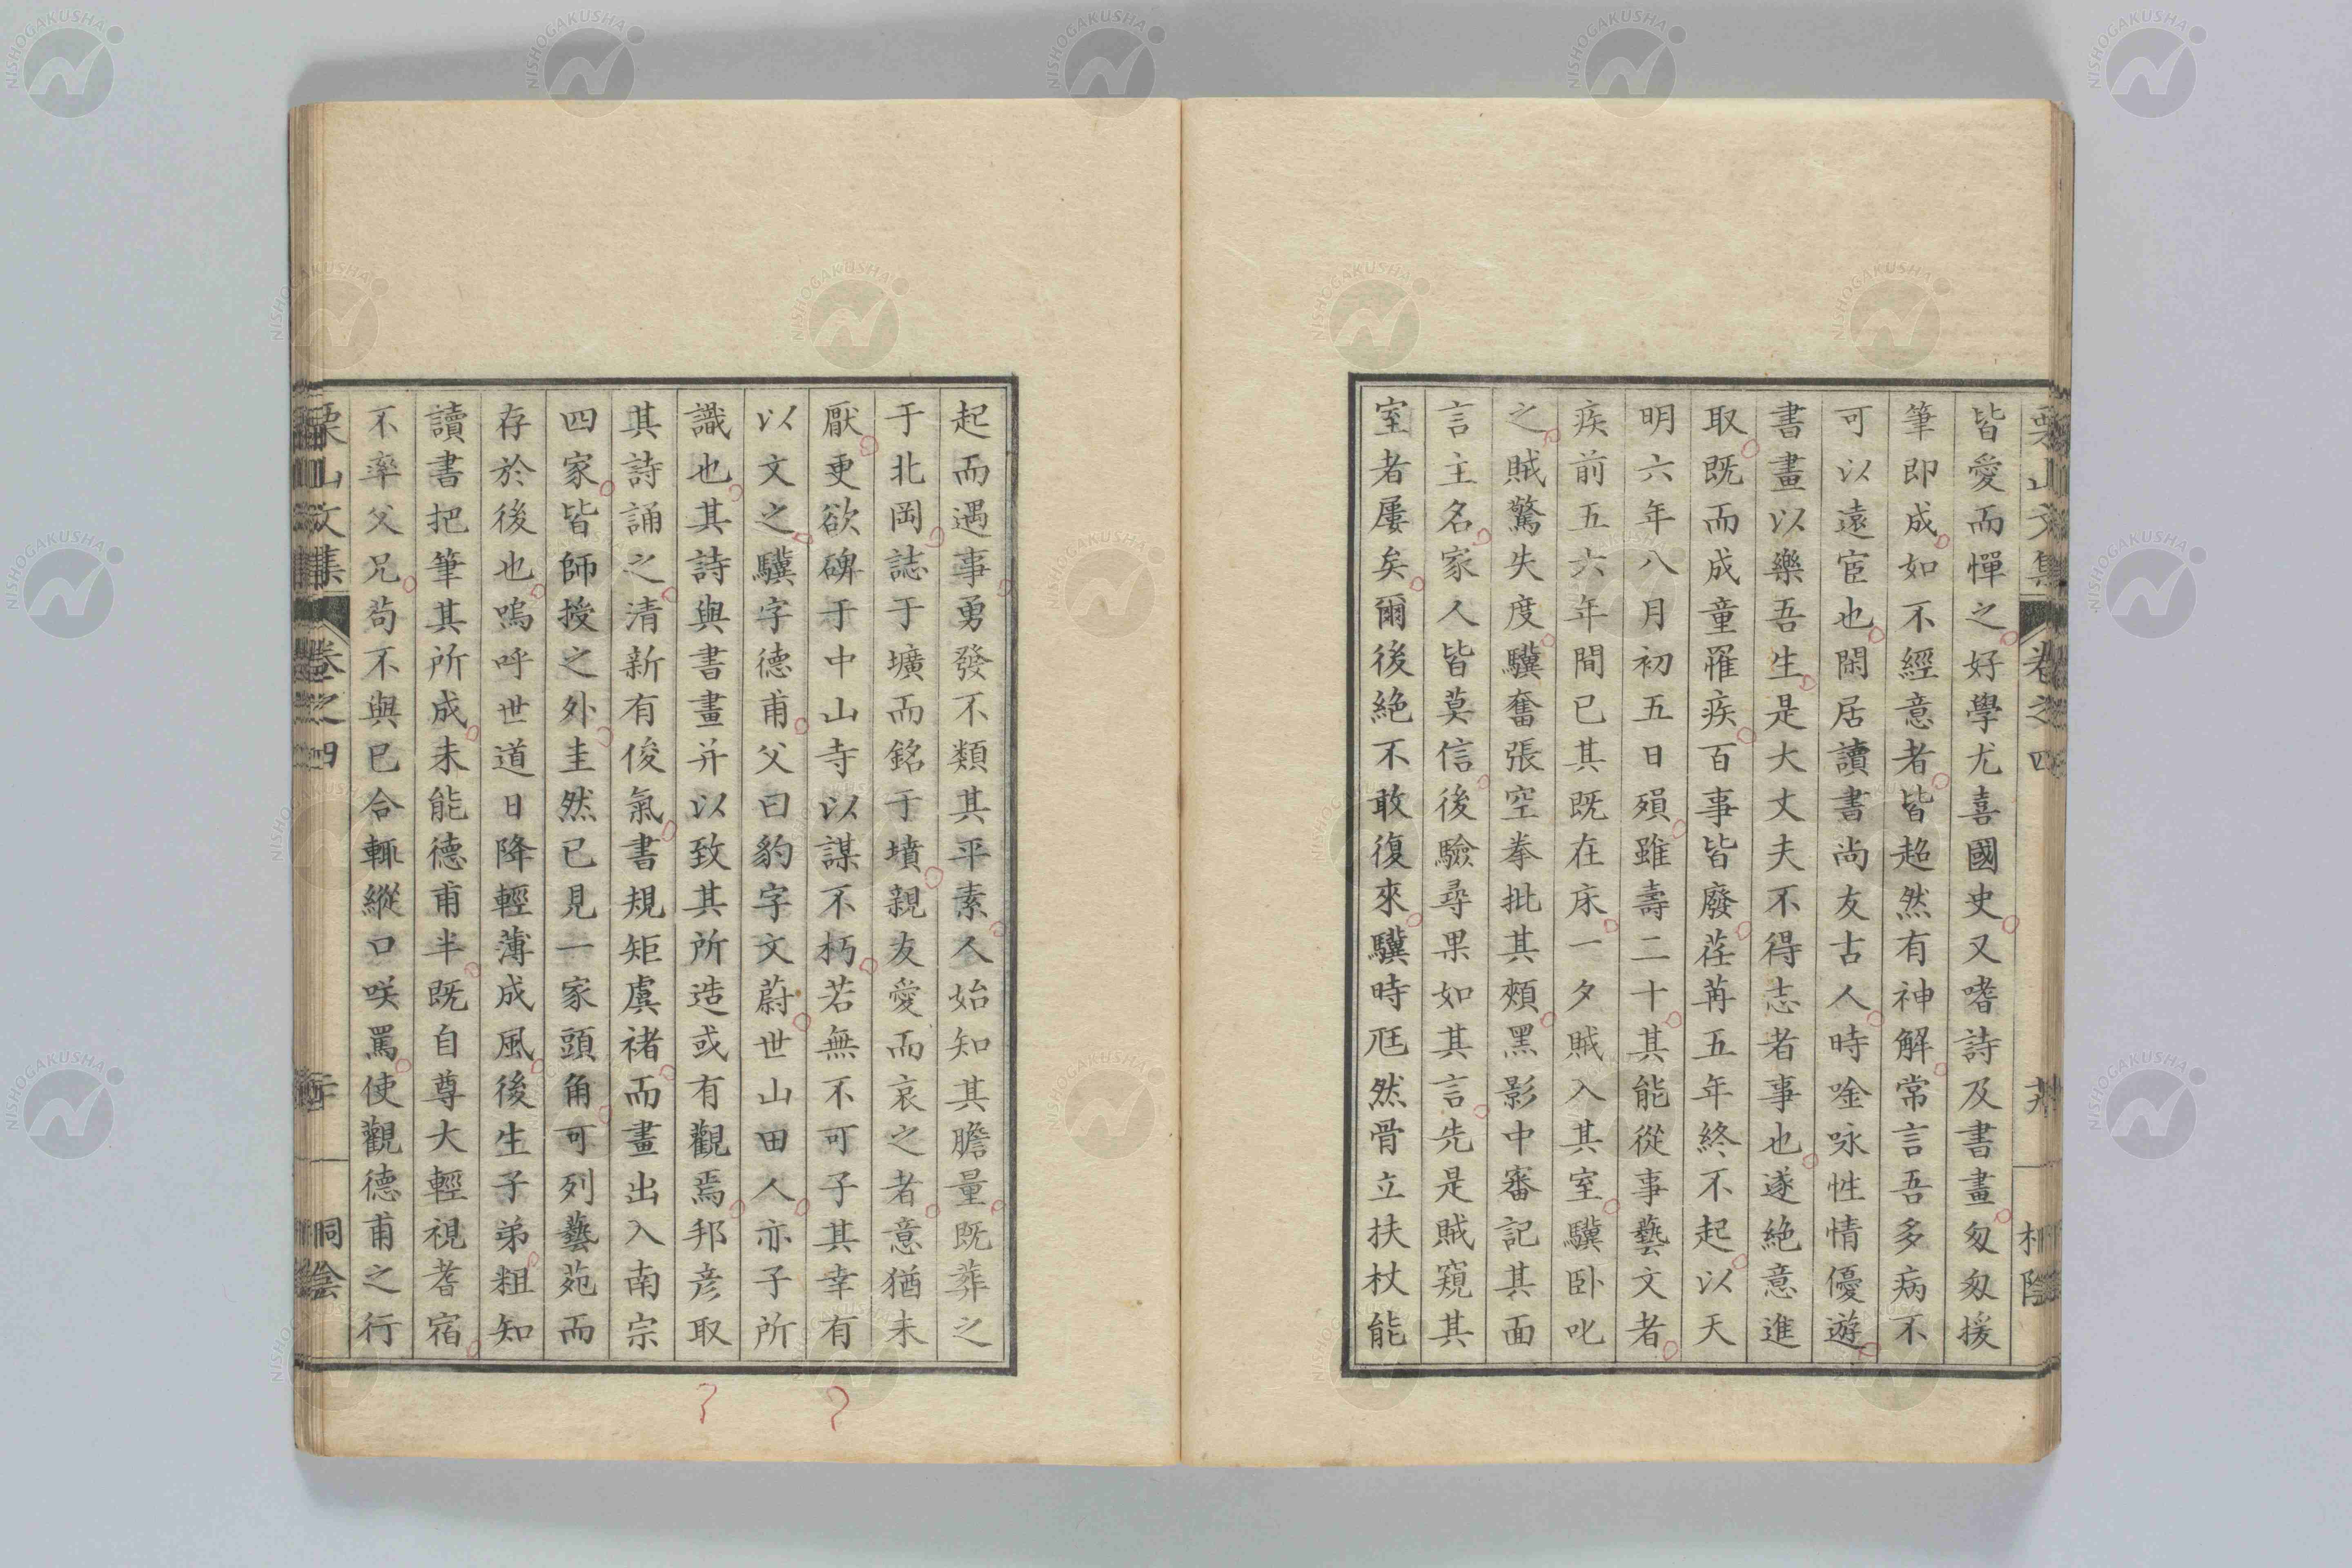 皆愛而憚之好學尤喜國史又嗜詩及書畫匆匆援
筆即成如不經意者皆超然有神解常言吾多病不
可以遠宦也閑居讀書尚友古人時唫咏性情優遊
書畫以樂吾生是大丈夫不得志者事也遂絶意進
取既而成童罹疾百事皆廢荏苒五年終不起以天
明六年八月初五日殞雖壽二十其能從事藝文者
疾前五六年間已其既在床一夕賊入其室驥臥叱
之賊驚失度驥奮張空拳批其頰黑影中審記其面
言主名家人皆莫信後驗尋果如其言先是賊窺其
室者屢矣爾後絶不敢復來驥時尫然骨立扶杖能
起而遇事勇發不類其平素人始知其膽量既葬之
于北岡誌于壙而銘于墳親友愛而哀之者意猶未
厭更欲碑于中山寺以謀不朽若無不可子其幸有
以文之驥字德甫父曰豹字文蔚世山田人亦子所
識也其詩與書畫并以致其所造或有觀焉邦彦取
其詩誦之清新有俊氣書規矩虞褚而畫出入南宗
四家皆師授之外圭然已見一家頭角可列藝苑而
存於後也嗚呼世道日降輕薄成風後生子弟粗知
讀書把筆其所成未能德甫半既自尊大輕視耆宿
不率父兄苟不與已合輒縱口咲罵使觀德甫之行
栗山文集 卷之四
NISHOGAKUSHA